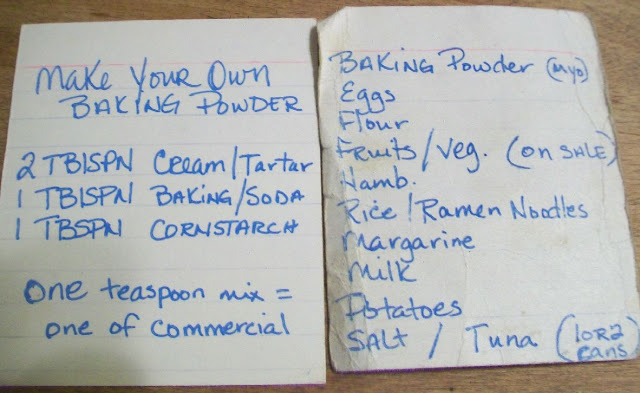 Make Your Own
BAKING POWDER
2 TBlSPN Cream/Tartar
1 TBlSPN BAKING/SODA
1 TBSPN CORNSTARCH
One teaspoon mix =
one of commercial
BAKING Powder (MYO)
Eggs
Flour
Fruits/Veg. (on SALE)
Hamb.
Rice/Ramen Noodles
Margarine
Milk
Potatoes
SALT / Tuna (1 or 2
cans)